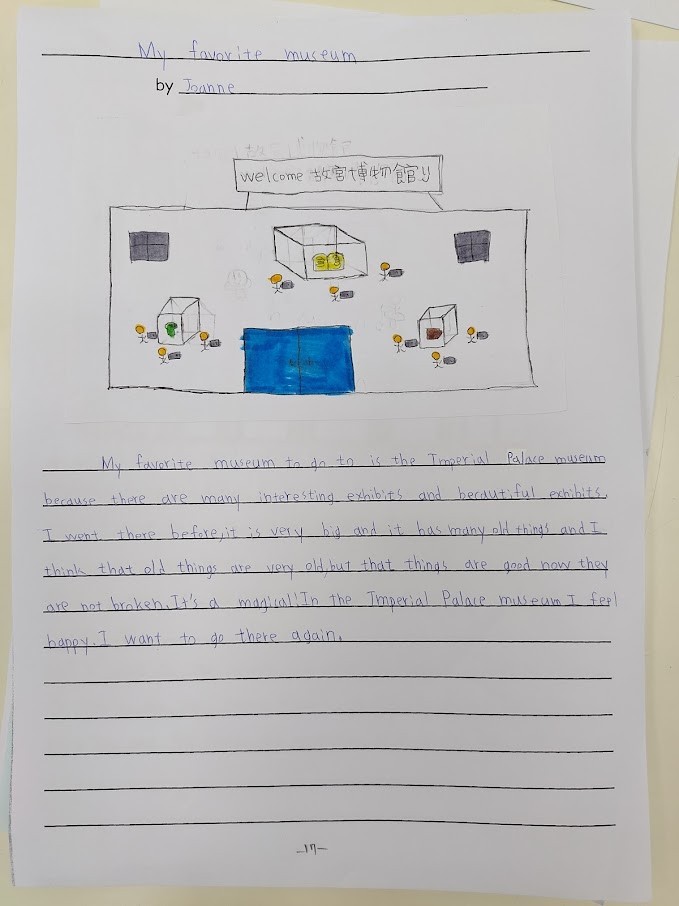 My favorite museum
by Joanne
welcome 故宮博物館!!
My favorite museum to go to is the Imperial Palace museum
because there are many interesting exhibits and beautiful exhibits.
I went there before,it is very big and it has many old things and I
think that old things are very old,but that things are good now they
are not broken.It's a magical!In the Imperial Palace museum I feel
happy.I want to go there again.
-17-